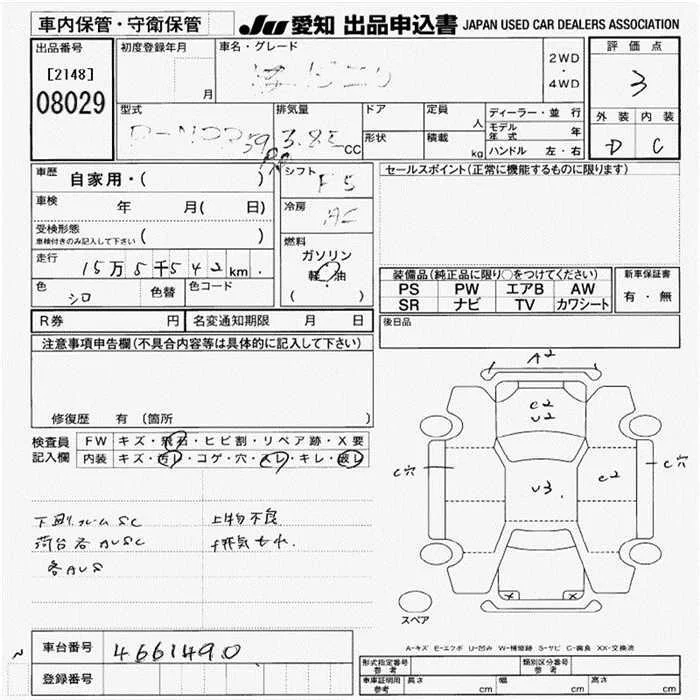 車内保管・守衛保管
JU 愛知 出品申込書 JAPAN USED CAR DEALERS ASSOCIATION
出品番号
[2148]
08029
初度登録年月
月
車名・グレード
2WD
・
4WD
評価点
3
外装 内装
D C
型式
排気量
3.85 CC
ドア
形状
定員
人
積載
kg
ディーラー・並行
モデル年式 年
ハンドル 左・右
車歴 自家用・( )
車検 年 月( 日)
受検形態
車検付きのみ記入して下さい ( )
走行 15万5千542km.
色 シロ 色替 色コード
シフト F5
冷房 AC
燃料
ガソリン
軽油
( )
セールスポイント(正常に機能するものに限ります)
装備品(純正品に限り○をつけてください)
PS PW エアB AW
SR ナビ TV カワシート
新車保証書
有・無
R券 円 名変通知期限 月 日
後日品
注意事項申告欄(不具合内容等は具体的に記入して下さい)
修復歴 有 (箇所 )
検査員記入欄
FW キズ・飛石・ヒビ割・リペア跡・X要
内装 キズ・汚レ・コゲ・穴・スレ・キレ・破レ
下回リフレームSC
荷台各AUSC
各AUS
上物不良
排気もれ
A2
C2
U2
C穴
U3.
C2
C穴
X X
スペア
A-キズ E-エクボ U-凹み W-補修跡 S-サビ C-腐食 XX-交換済
車台番号 4661490
登録番号
形式指定番号 参考
類別区分番号 参考
車庫証明用 参考 長さ cm 幅 cm 高さ cm